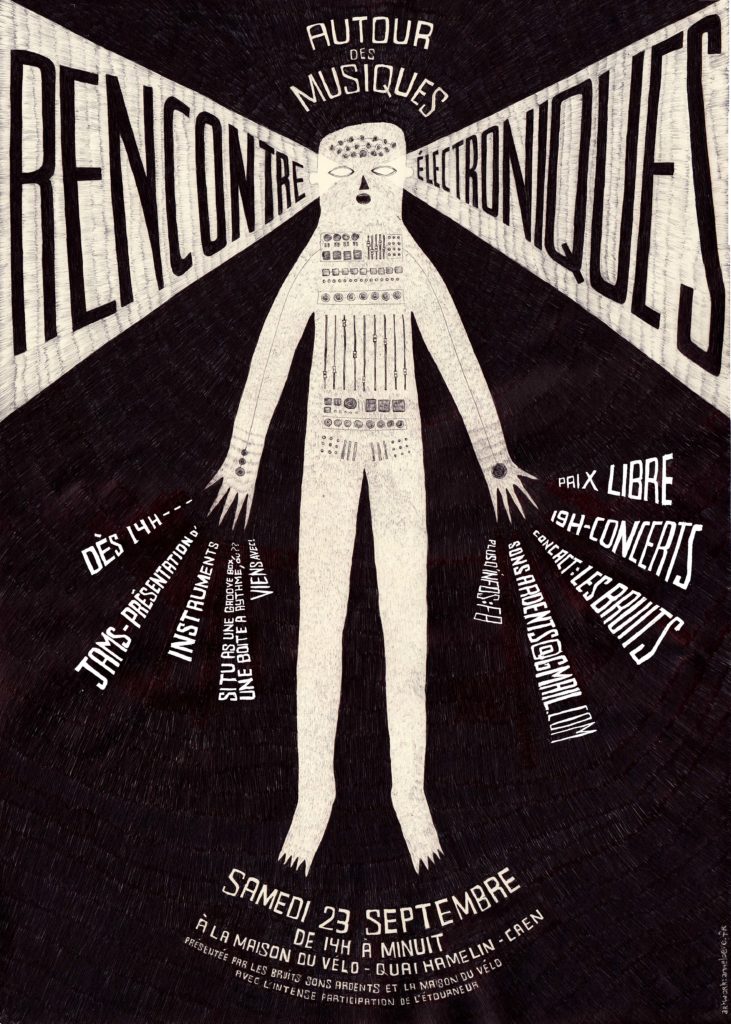 AUTOUR
DES
MUSIQUES
RENCONTRE
ÉLECTRONIQUES
DÈS 14H---
JAMS-PRÉSENTATION D'
INSTRUMENTS
SI TU AS UNE GROOVE BOX,
UNE BOÎTE À RYTHME, OU ??
VIENS AVEC!
PRIX LIBRE
19H-CONCERTS
CONTACT: LES BRUITS
SONS ARDENTS@GMAIL.COM
PLUS D'INFOS: FB
SAMEDI 23 SEPTEMBRE
DE 14H À MINUIT
À LA MAISON DU VÉLO - QUAI HAMELIN - CAEN
PRÉSENTÉE PAR LES BRUITS SONS ARDENTS ET LA MAISON DU VÉLO
AVEC L'INTENSE PARTICIPATION DE L'ÉTOURNEUR